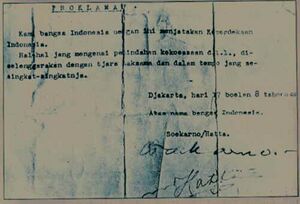 PROKLAMASI
Kami bangsa Indonesia dengan ini menjatakan Kemerdekaan
Indonesia.
Hal-hal jang mengenai pemindahan kekoeasaan d.l.l., di-
selenggarakan dengan tjara saksama dan dalam tempo jang se-
singkat-singkatnja.
Djakarta, hari 17 boelan 8 tahoen
Atas nama bangsa Indonesia.
Soekarno/Hatta.
Soekarno.
Hatta